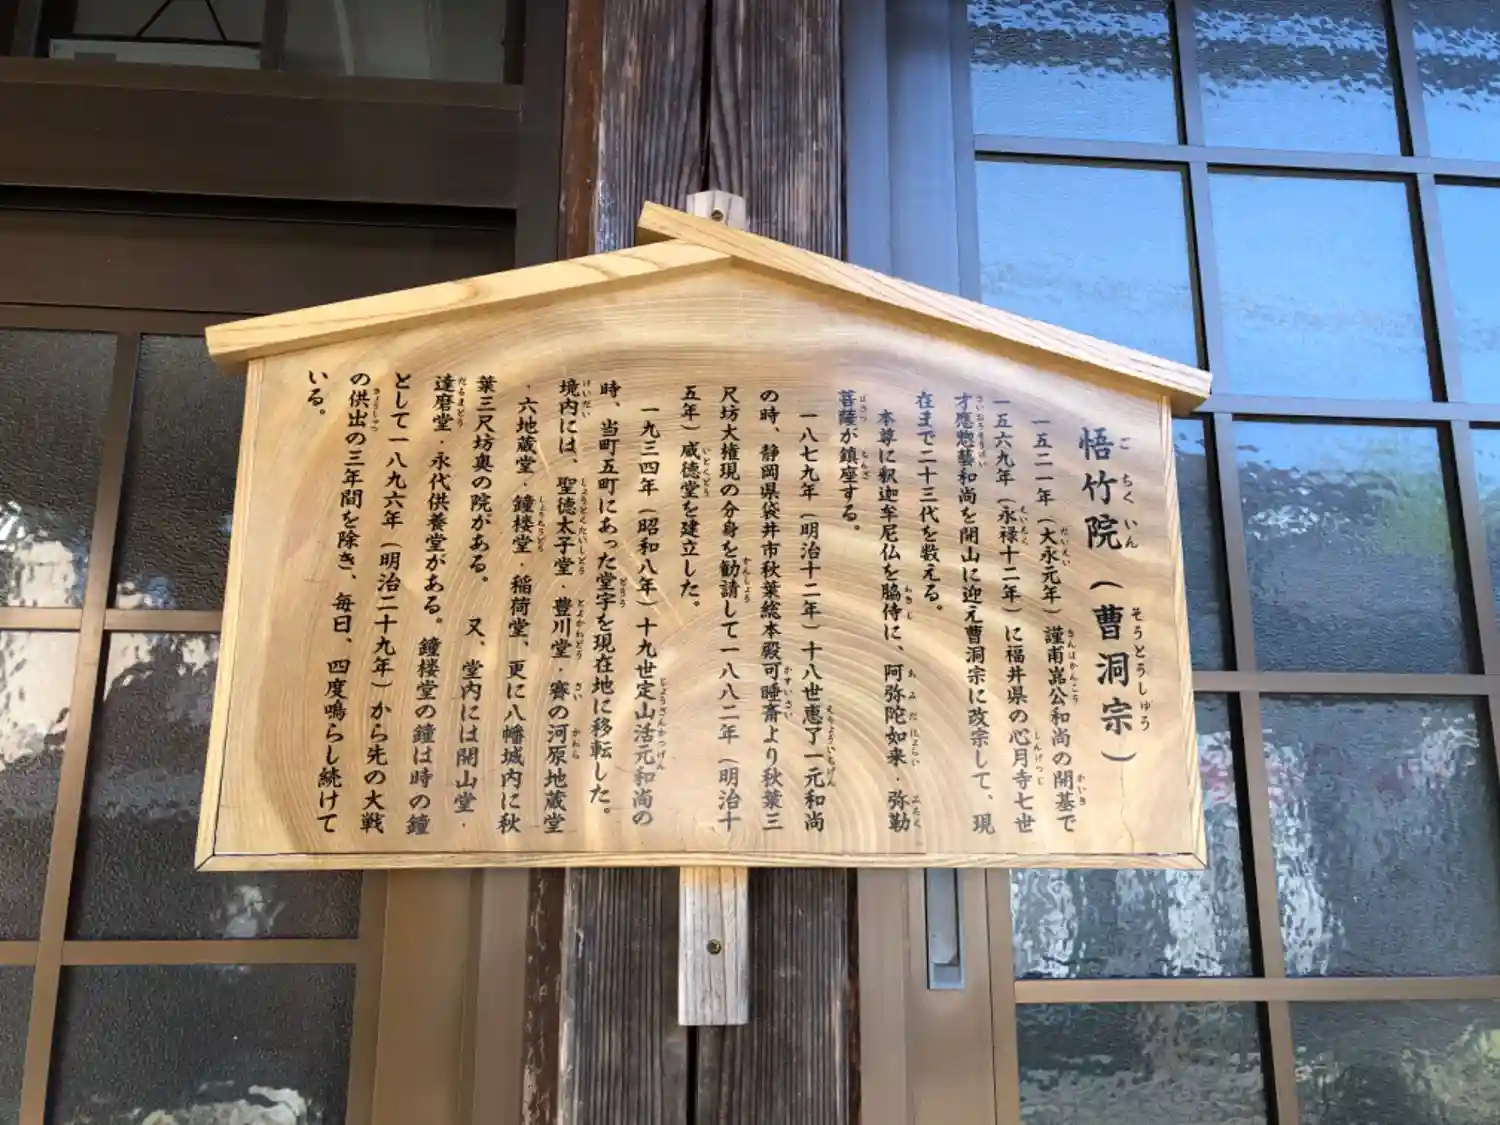 悟竹院（曹洞宗）
一五二一年（大永元年）謹甫崑公和尚の開基で
一五六九年（永禄十二年）に福井県の心月寺七世
才應惣藝和尚を開山に迎え曹洞宗に改宗して、現
在まで二十三代を数える。
本尊に釈迦牟尼仏を脇侍に、阿弥陀如来・弥勒
菩薩が鎮座する。
一八七九年（明治十二年）十八世恵了一元和尚
の時、静岡県袋井市秋葉総本殿可睡斎より秋葉三
尺坊大権現の分身を勧請して一八八二年（明治十
五年）威徳堂を建立した。
一九三四年（昭和八年）十九世定山活元和尚の
時、当町五町にあった堂宇を現在地に移転した。
境内には、聖徳太子堂・豊川堂・賽の河原地蔵堂
・六地蔵堂・鐘楼堂・稲荷堂、更に八幡城内に秋
葉三尺坊奥の院がある。　又、堂内には開山堂・
達磨堂・永代供養堂がある。鐘楼堂の鐘は時の鐘
として一八九六年（明治二十九年）から先の大戦
の供出の三年間を除き、毎日、四度鳴らし続けて
いる。